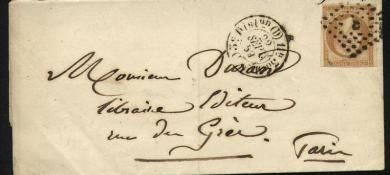 Monsieur Durand
libraire Editeur
rue du Grès.
Paris